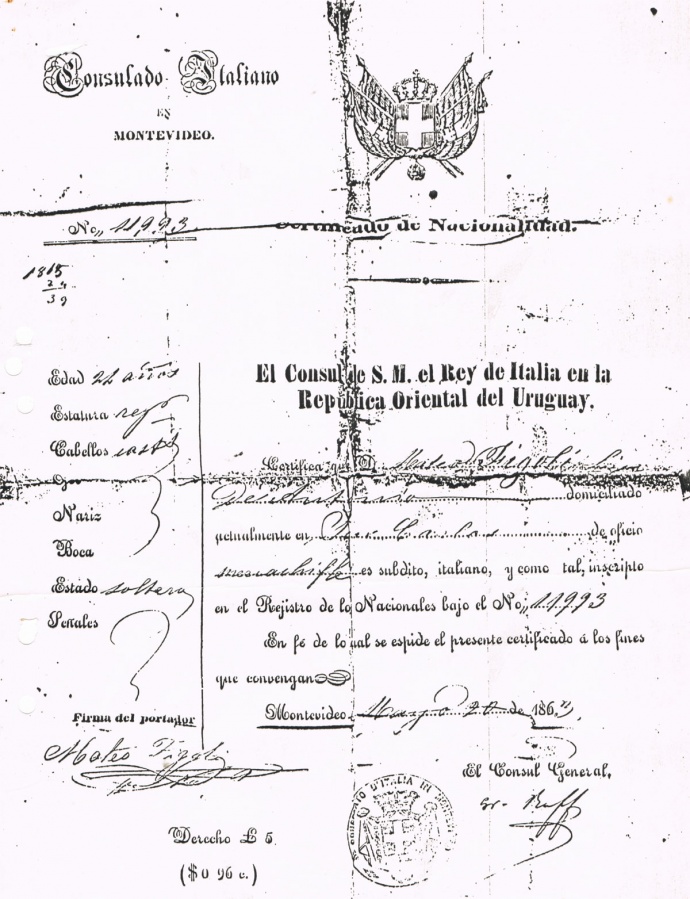 Consulado Italiano
EN
MONTEVIDEO.
No,, 11993
Certificado de Nacionalidad.
1815
24
39
Edad 22 años
Estatura reg
Cabellos cast
O
Nariz
Boca
Estado soltero
Señales
Firma del portador
Mateo
El Consul de S. M. el Rey de Italia en la
República Oriental del Uruguay,
Certifica que D. Mateo
domiciliado
actualmente en San Carlos de oficio
es subdito, italiano, y como tal, inscripto
en el Rejistro de lo Nacionales bajo el No,, 11993
En fé de lo ual se espide el presente certificado á los fines
que convengan
Montevideo Mayo 20 de 1863.
El Consul General,
Raff
CONSOLATO D'ITALIA IN
Derecho £ 5
($ 0 96 c.)